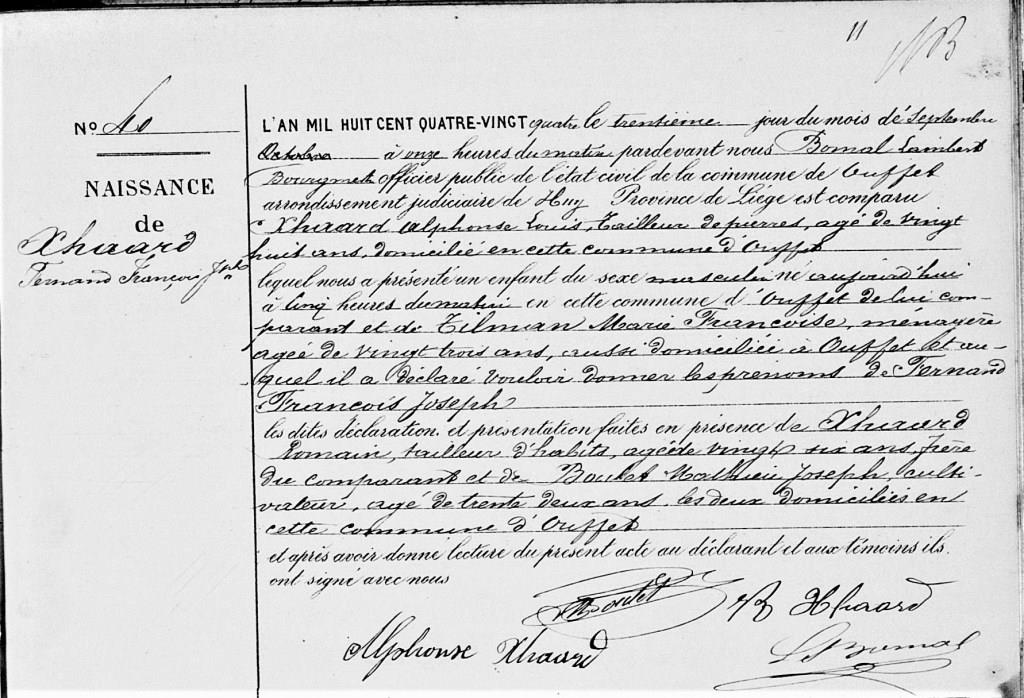 11
N° 40
NAISSANCE
de
Xhaard
Fernand François Jph
L'AN MIL HUIT CENT QUATRE-VINGT quatre le trentième jour du mois de Septembre
Octobre à onze heures du matin pardevant nous Bomal Lambert
Bourgmest officier public de l'état civil de la commune de Ouffet
arrondissement judiciaire de Huy Province de Liége est comparu
Xhaard Alphonse Louis, Tailleur de pierres, agé de vingt
huit ans, domicilié en cette commune d'Ouffet
lequel nous a présenté un enfant du sexe masculin né aujourd'hui
à cinq heures du matin en cette commune d'Ouffet de lui com-
parant et de Tilman Marie Françoise, ménagère
ageé de vingt trois ans, aussi domiciliée à Ouffet et au-
quel il a déclaré vouloir donner les prenoms de Fernand
François Joseph
les dites déclaration et présentation faites en présence de Xhaard
Romain, tailleur d'habits, agé de vingt six ans, frère
du comparant et de Boutet Mathieu Joseph, culti-
vateur, agé de trente deux ans les deux domiciliés en
cette commune d'Ouffet
et après avoir donné lecture du présent acte au déclarant et aux témoins ils
ont signé avec nous
Boutet R Xhaard
Alphonse Xhaard L Bomal